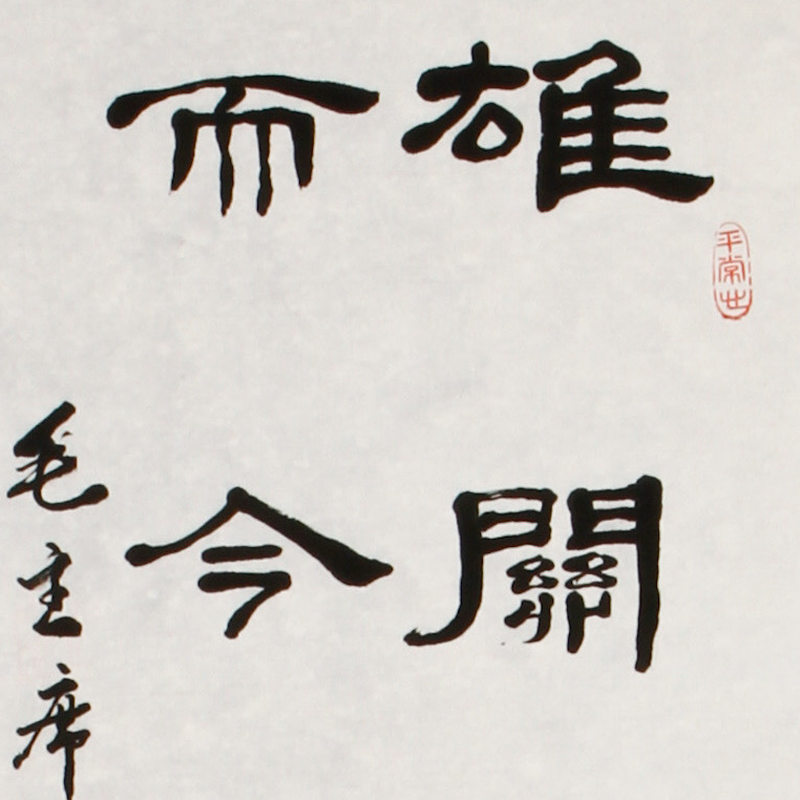 雄關
而今
毛主席
平常世